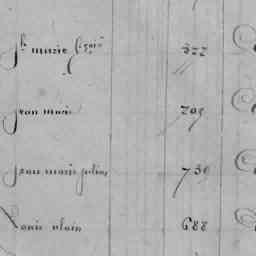 Jh marie 322
jean marie 209
jean marie julien 730
Louis alain 688